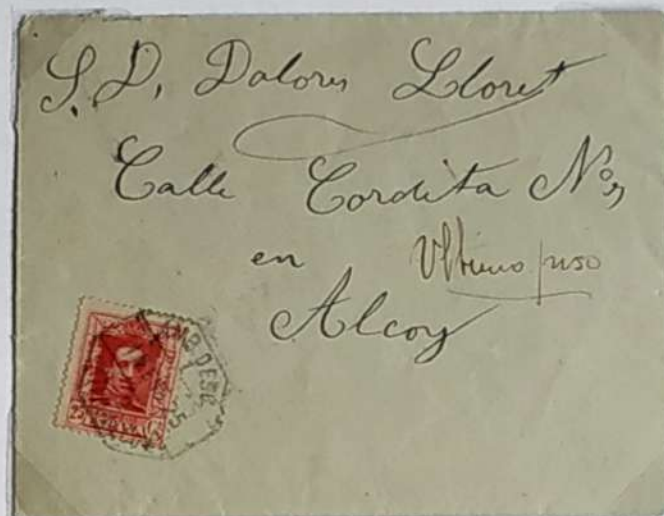 S. D. Dolores Lloret
Calle Cordeta Nº 7
en Ultimo piso
Alcoy
AMB. DESC.